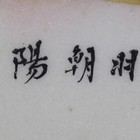 羽朝陽